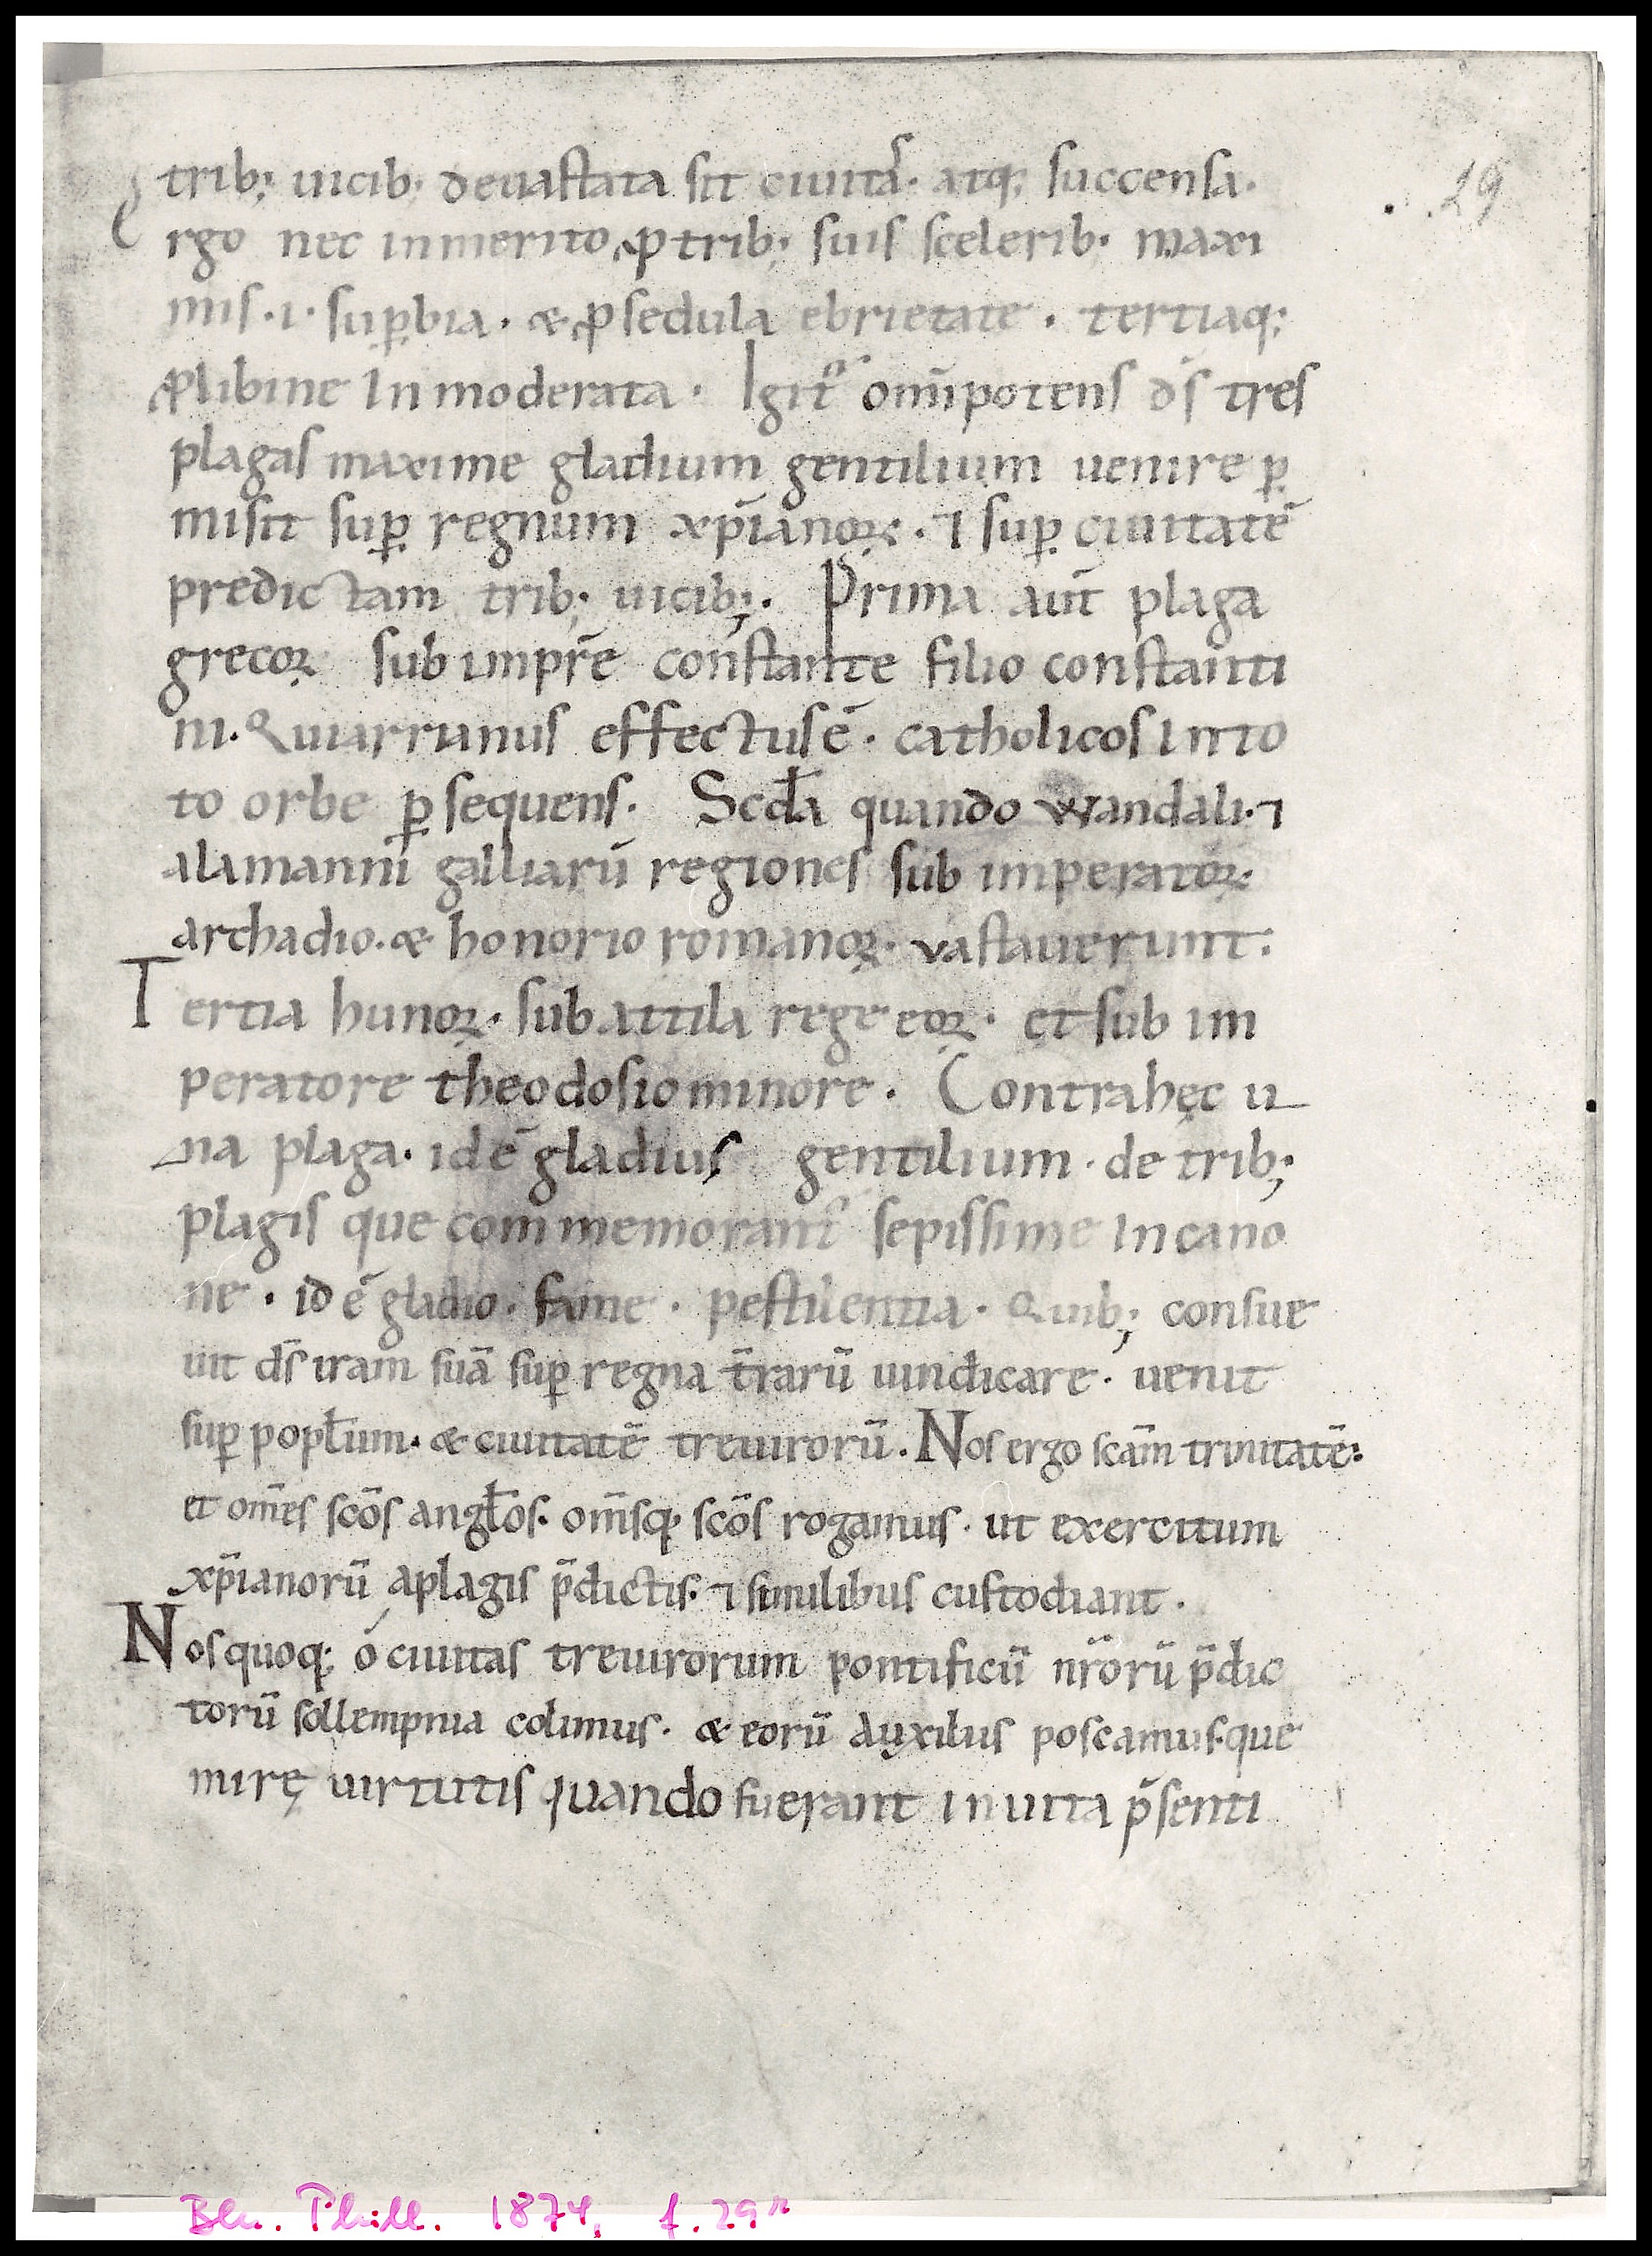 29
trib; uicib; deuastata sit ciuitaſ. atq; succensa.
Ergo nec inmerito, ꝓ trib; suis scelerib; maxi
mis .i. suꝑbia. & ꝓ sedula ebrietate. tertiaq;
ꝓ libine inmoderata. Igit᷑ om̄ipotens d̄s tres
plagas maxime gladium gentilium uenire ꝑ
misit suꝑ regnum xp̄ianoꝝ. ⁊ suꝑ ciuitatē
predictam trib; uicib;. Prima aut̄ plaga
grecoꝝ sub impr̄e constante filio constanti
ni. Qui arrianus effectus ē. catholicos in to
to orbe ꝑsequens. Scd̄a quando wandali. ⁊
alamanni galliarū regiones sub imperatoꝝ.
archadio. & honorio romanoꝝ. vastauerunt.
Tertia hunoꝝ. sub attila rege eoꝝ. et sub im
peratore theodosio minore. Contra hęc u
na plaga. id ē gladius gentilium. de trib;
plagis que commemorant᷑ sepissime in cano
ne. id ē gladio. fame. pestilentia. Quib; consue
uit d̄s iram suā suꝑ regna t̄rarū uindicare. uenit
suꝑ popl̄um. & ciuitatē treuirorū. Nos ergo scām trinitatē.
et om̄es scōs angl̄os. om̄sq; scōs rogamus. ut exercitum
xp̄ianorū a plagis p̄dictis. ⁊ similibus custodiant.
Nos quoq; ó ciuitas treuirorum pontificū nr̄orū p̄dic
torū sollempnia colimus. & eorū auxilius poscamus. que
mirę uirtutis quando fuerant in uita p̄senti
Bln. Phill. 1874, f. 29r